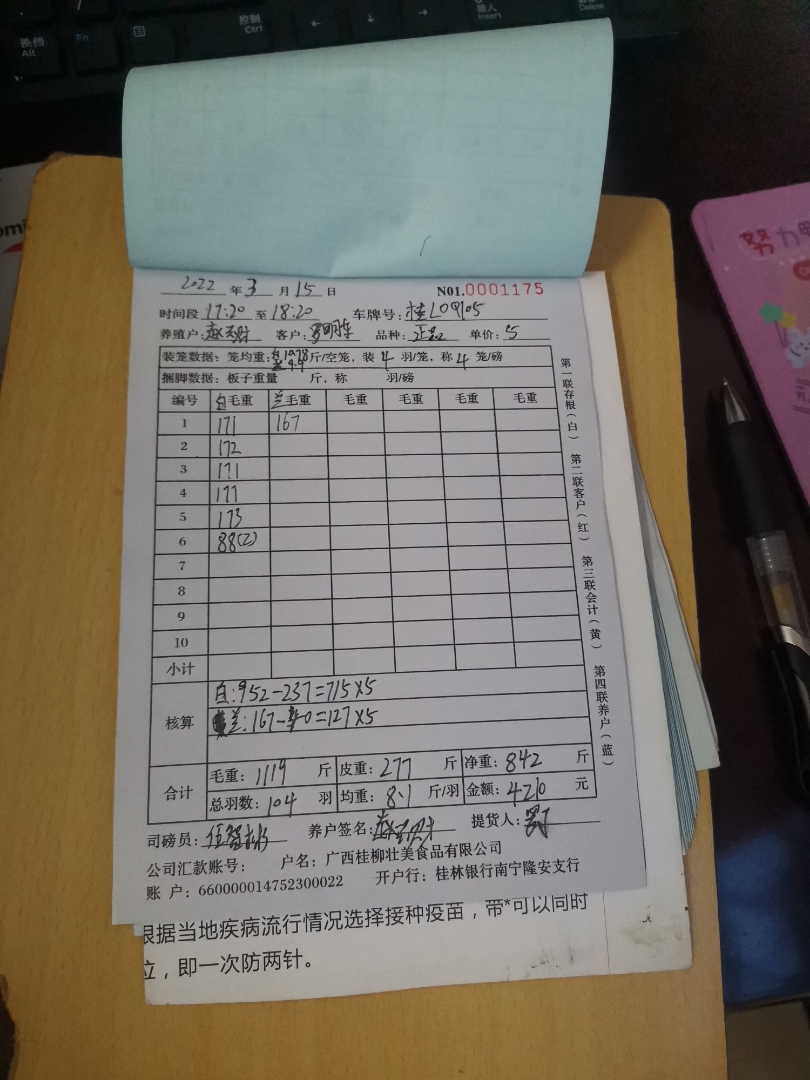 换档
Alt
Fn
控制
Ctrl
插入
Insert
Delete
努力
2022 年 3 月 15 日 N01.0001175
时间段 17:20 至 18:20 车牌号: 桂L09105
养殖户: 客户: 品种: 单价: 5
装笼数据: 笼均重: 白10.78 兰9.9 斤/空笼, 装 4 羽/笼, 称 4 笼/磅
捆脚数据: 板子重量 斤, 称 羽/磅
编号 白毛重 兰毛重 毛重 毛重 毛重 毛重
1 171 167
2 172
3 171
4 177
5 173
6 88(2)
7
8
9
10
小计
核算
白: 952-237=715×5
兰: 167-40=127×5
合计
毛重: 1119 斤 皮重: 277 斤 净重: 842 斤
总羽数: 104 羽 均重: 8.1 斤/羽 金额: 4210 元
司磅员: 养户签名: 提货人:
公司汇款账号: 户名: 广西桂柳壮美食品有限公司
账 户: 660000014752300022 开户行: 桂林银行南宁隆安支行
第一联存根(白) 第二联客户(红) 第三联会计(黄) 第四联养户(蓝)
根据当地疾病流行情况选择接种疫苗，带*可以同时
位，即一次防两针。